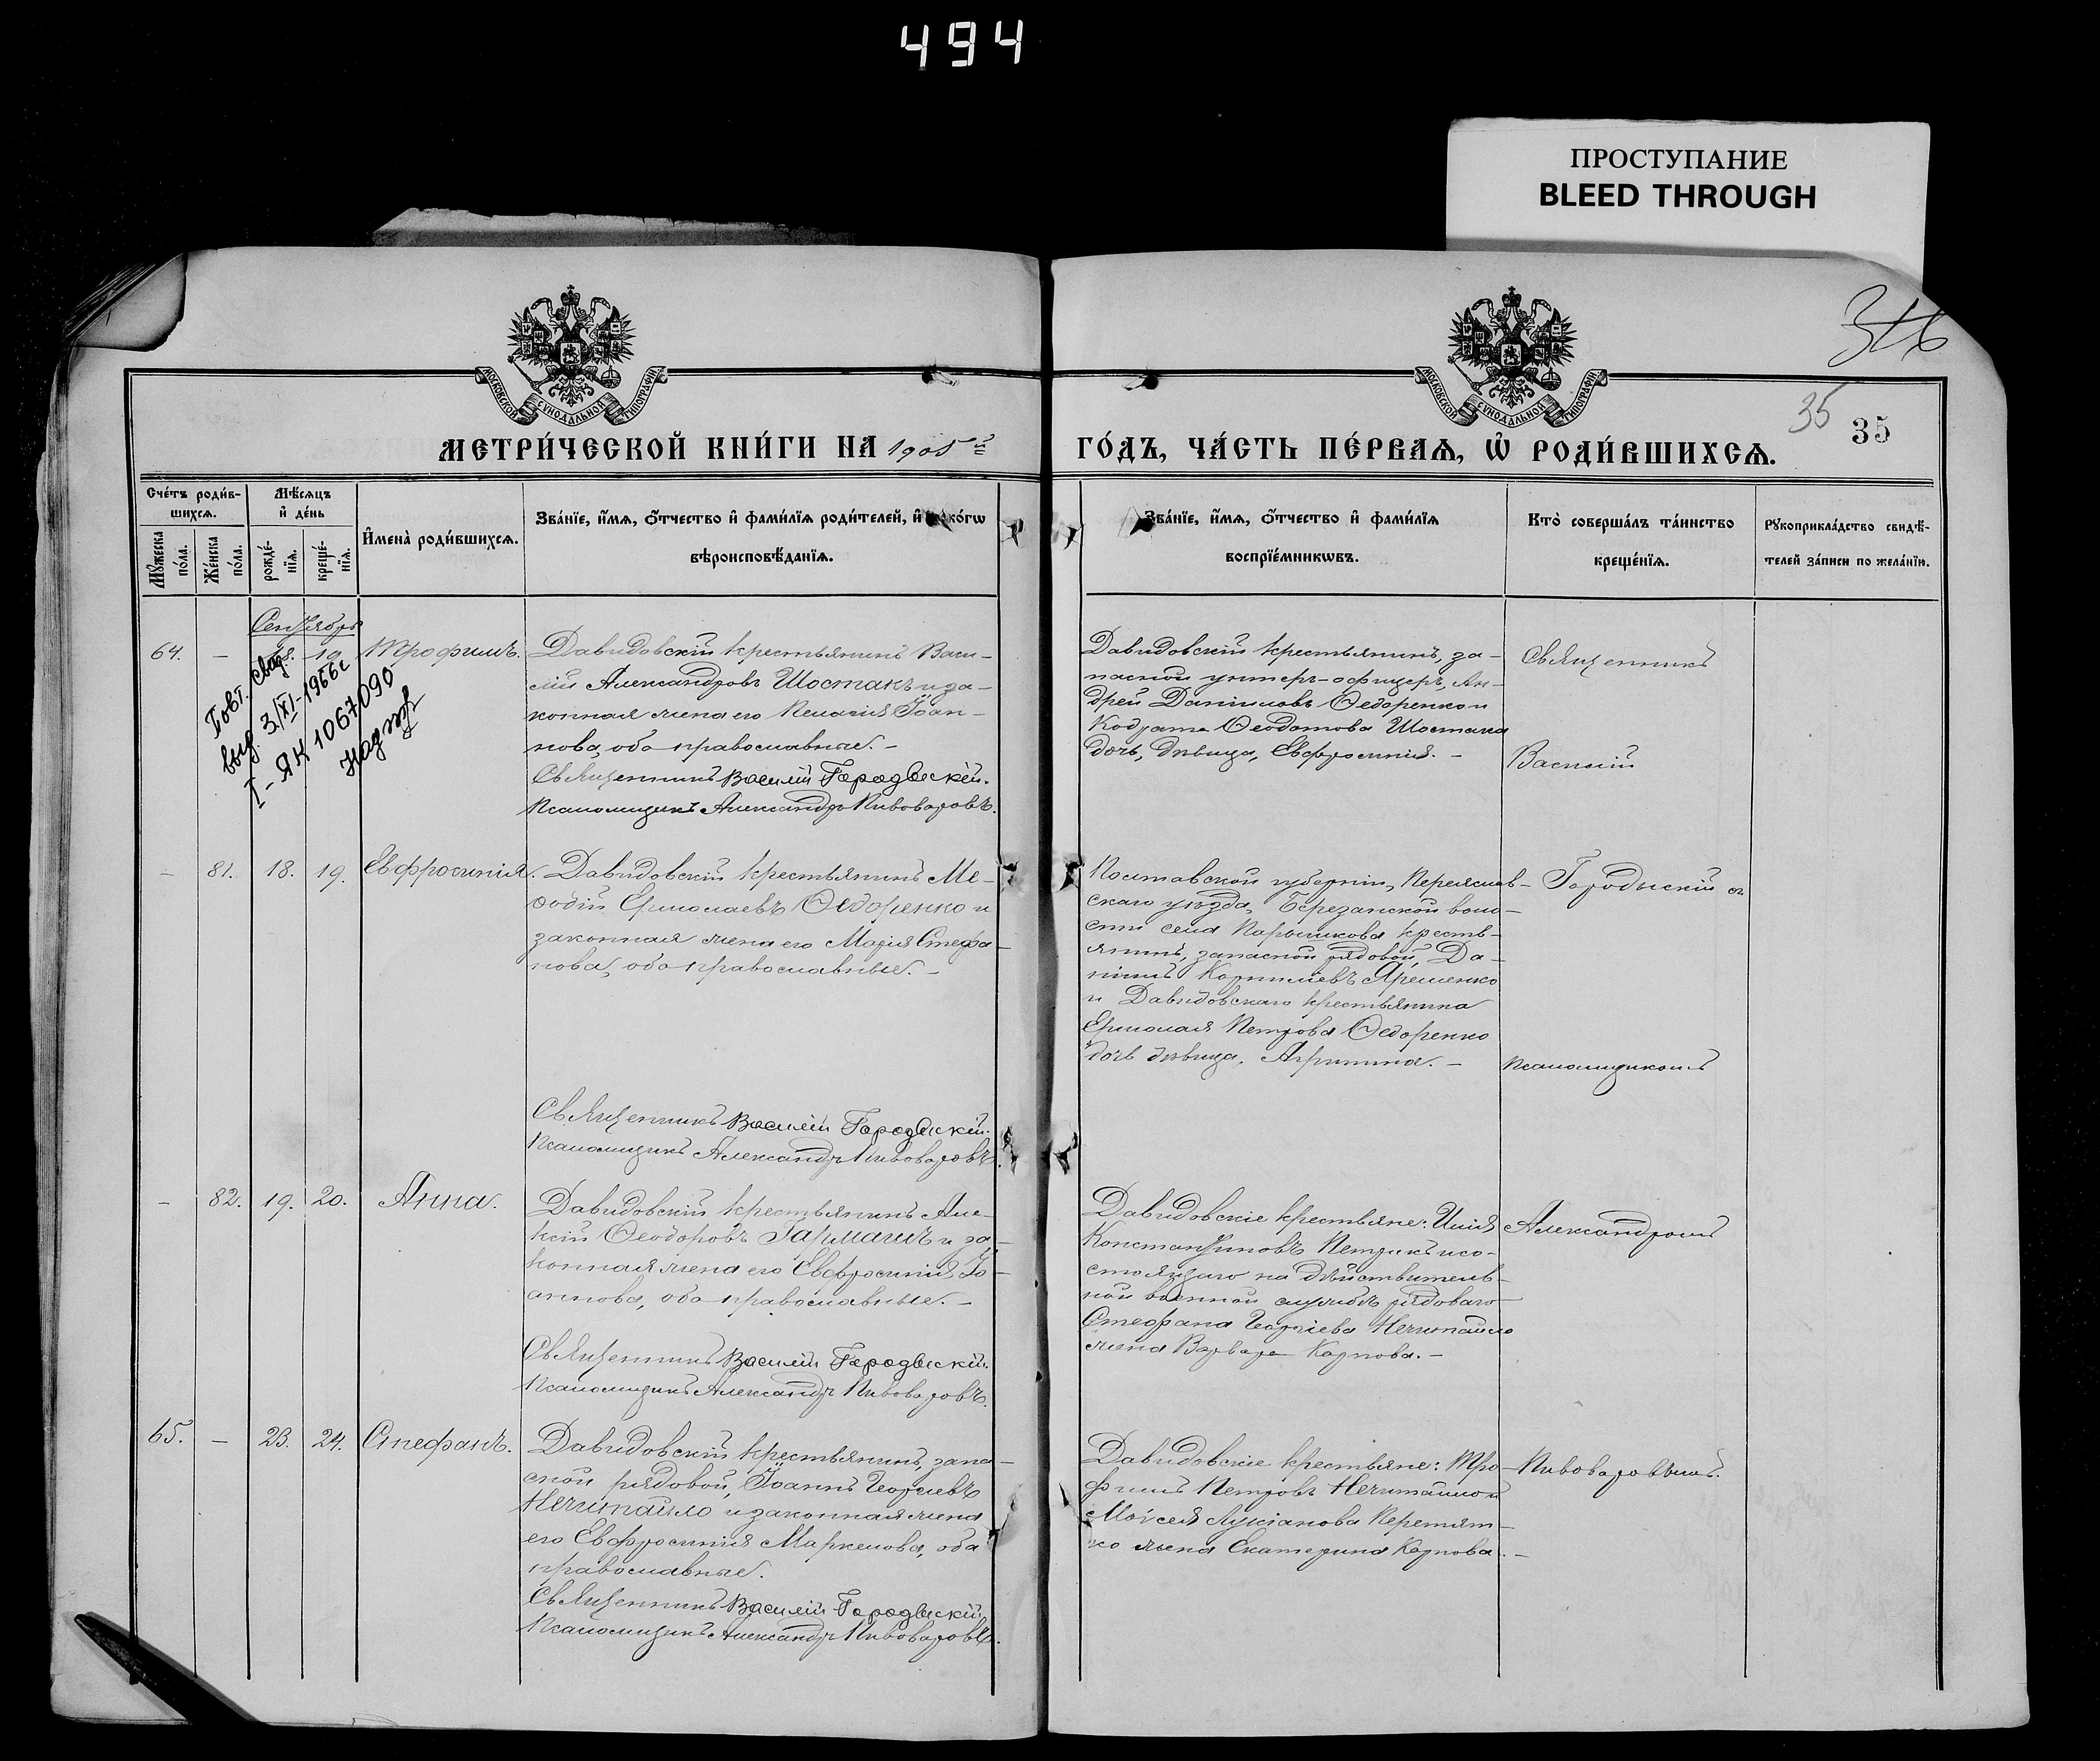 494
ПРОСТУПАНИЕ
BLEED THROUGH
346
35
35
МОСКОВСКОЙ СУНОДАЛЬНОЙ ТИПОГРАФІИ
МОСКОВСКОЙ СУНОДАЛЬНОЙ ТИПОГРАФІИ
МЕТРИ́ЧЕСКОЙ КНИ́ГИ НА 1905й
ГО́ДЪ, ЧА́СТЬ ПЕ́РВАѦ, Ѿ РОДИ́ВШИХСѦ.
Сче́тъ роди́в-
шихсѧ.
Мꙋжеска по́ла.
Же́нска по́ла.
Мѣ́сѧцъ
и҆ де́нь
рожде́-
нїѧ.
креще́-
нїѧ.
И҆мена̀ роди́вшихсѧ.
Зва́нїе, и҆́мѧ, ѻ҆́тчество и҆ фами́лїѧ роди́телей, и҆ како́гѡ
вѣроисповѣ́данїѧ.
Зва́нїе, и҆́мѧ, ѻ҆́тчество и҆ фами́лїѧ
воспрїе́мникѡвъ.
Кто̀ соверша́лъ та́инство
креще́нїѧ.
Рꙋкоприкла́дство свидѣ́-
телей за́писи по жела́нїю.
Сентябрь
64. – 18. 19. Трофимъ.
Давидовскій крестьянинъ Васи-
лій Александровъ Шостакъ и за-
конная жена его Пелагія Іоан-
нова, оба православные. –
Священникъ Василій Городыскій.
Псаломщикъ Александръ Пивоваровъ.
Повт. свид.
выд. 3/XI-1956г
I-ЯК 1067090
Давидовскій крестьянинъ, за-
пасной унтеръ-офицеръ, Ан-
дрей Даніиловъ Ѳедоренко и
Кодрата Ѳеодотова Шостака
дочь, дѣвица, Евфросинія. –
Священникъ
Василій
– 81. 18. 19. Евфросинія.
Давидовскій крестьянинъ Ме-
ѳодій Ермолаевъ Ѳедоренко и
законная жена его Марія Стефа-
нова, оба православные. –
Священникъ Василій Городыскій.
Псаломщикъ Александръ Пивоваровъ.
Полтавской губерніи, Переяслав-
скаго уѣзда, Березанской воло-
сти села Парышкова кресть-
янинъ, запасной рядовой, Да-
ніилъ Корниліевъ Ярешенко
и Давидовскаго крестьянина
Ермолая Петрова Ѳедоренко
дочь дѣвица, Агрипина. –
Городыскій съ
Псаломщикомъ
– 82. 19. 20. Анна.
Давидовскій крестьянинъ Але-
ксій Ѳеодоровъ Гармашъ и за-
конная жена его Евфросинія Іо-
аннова, оба православные. –
Священникъ Василій Городыскій.
Псаломщикъ Александръ Пивоваровъ.
Давидовскіе крестьяне: Илія
Константиновъ Петрикъ и со-
стоящаго на дѣйствитель-
ной военной службѣ рядоваго
Стефана Георгіева Нечитайло
жена Варвара Карпова. –
Александромъ
65. – 23. 24. Стефанъ.
Давидовскій крестьянинъ, запа-
сной рядовой, Іоаннъ Георгіевъ
Нечитайло и законная жена
его Евфросинія Маркелова, оба
православные.
Священникъ Василій Городыскій
Псаломщикъ Александръ Пивоваровъ.
Давидовскіе крестьяне: Тро-
фимъ Петровъ Нечитайло и
Моисея Лукіанова Перетят-
ко жена Екатерина Карпова. –
Пивоваровымъ.